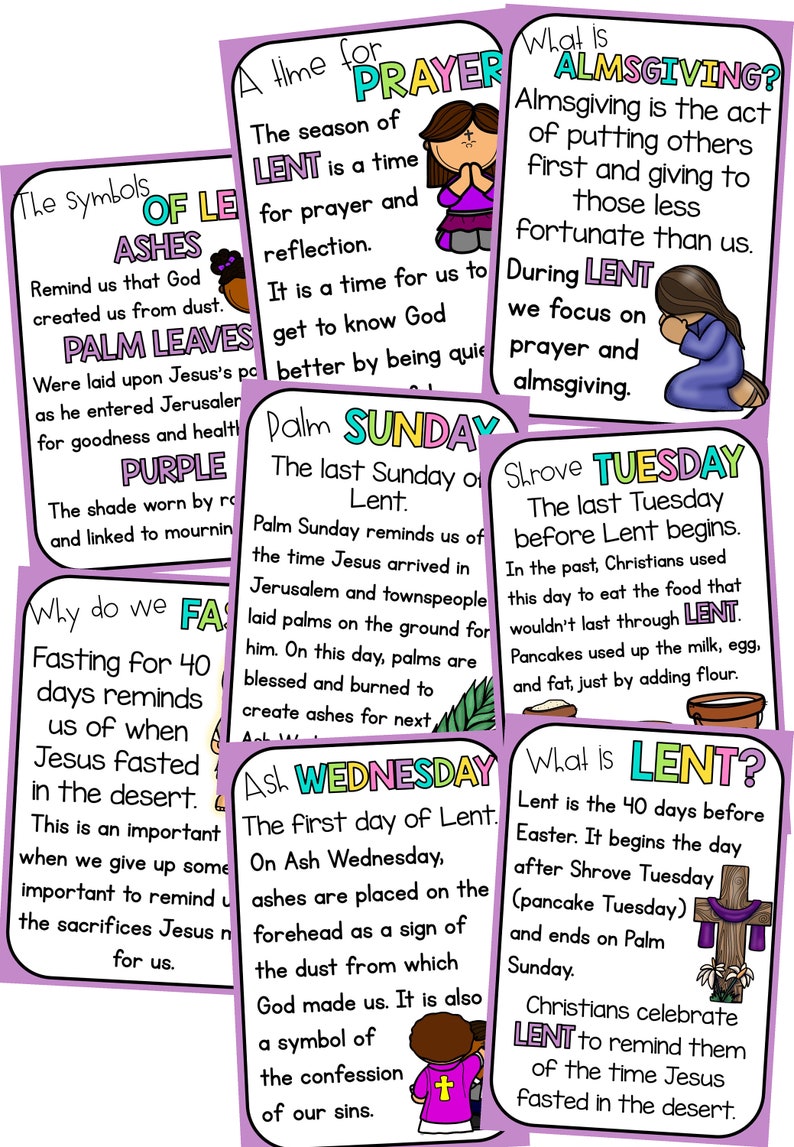 A time for
PRAYER
The season of
LENT is a time
for prayer and
reflection.
It is a time for us to
get to know God
better by being
What is
ALMSGIVING?
Almsgiving is the act
of putting others
first and giving to
those less
fortunate than us.
During LENT
we focus on
prayer and
almsgiving.
The Symbols
OF
ASHES
Remind us that God
created us from dust.
PALM LEAVES
Were laid upon Jesus's
as he entered Jerusalem
for goodness and
PURPLE
The shade worn by
and linked to
Palm SUNDAY
The last Sunday of
Lent.
Palm Sunday reminds us of
the time Jesus arrived in
Jerusalem and townspeople
laid palms on the ground for
him. On this day, palms are
blessed and burned to
create ashes for next
Shrove TUESDAY
The last Tuesday
before Lent begins.
In the past, Christians used
this day to eat the food that
wouldn't last through LENT.
Pancakes used up the milk, egg,
and fat, just by adding flour.
Why do we
Fasting for 40
days reminds
us of when
Jesus fasted
in the desert.
This is an important
when we give up
important to remind
the sacrifices Jesus
for us.
Ash WEDNESDAY
The first day of Lent.
On Ash Wednesday,
ashes are placed on the
forehead as a sign of
the dust from which
God made us. It is also
a symbol of
the confession
of our sins.
What is LENT?
Lent is the 40 days before
Easter. It begins the day
after Shrove Tuesday
(pancake Tuesday)
and ends on Palm
Sunday.
Christians celebrate
LENT to remind them
of the time Jesus
fasted in the desert.